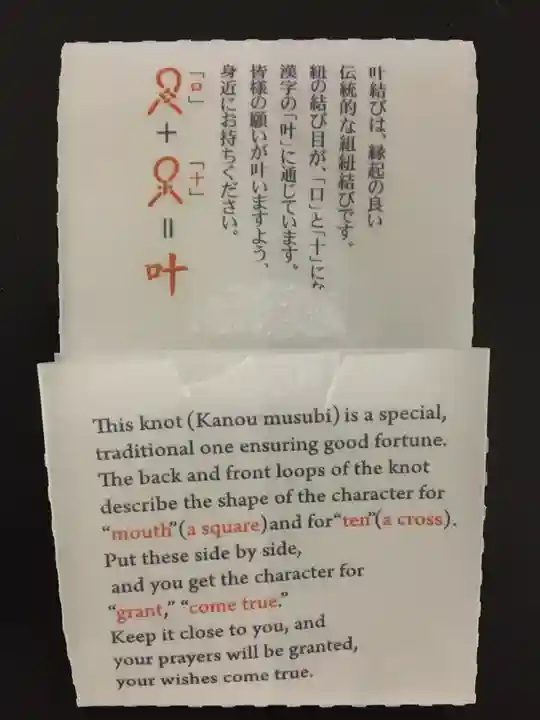 叶結びは、縁起の良い
伝統的な組紐結びです。
紐の結び目が、「口」と「十」にな
漢字の「叶」に通じています。
皆様の願いが叶いますよう、
身近にお持ちください。
「口」 「十」
+ = 叶
This knot (Kanou musubi) is a special,
traditional one ensuring good fortune.
The back and front loops of the knot
describe the shape of the character for
“mouth”(a square)and for“ten”(a cross).
Put these side by side,
and you get the character for
“grant,” “come true.”
Keep it close to you, and
your prayers will be granted,
your wishes come true.